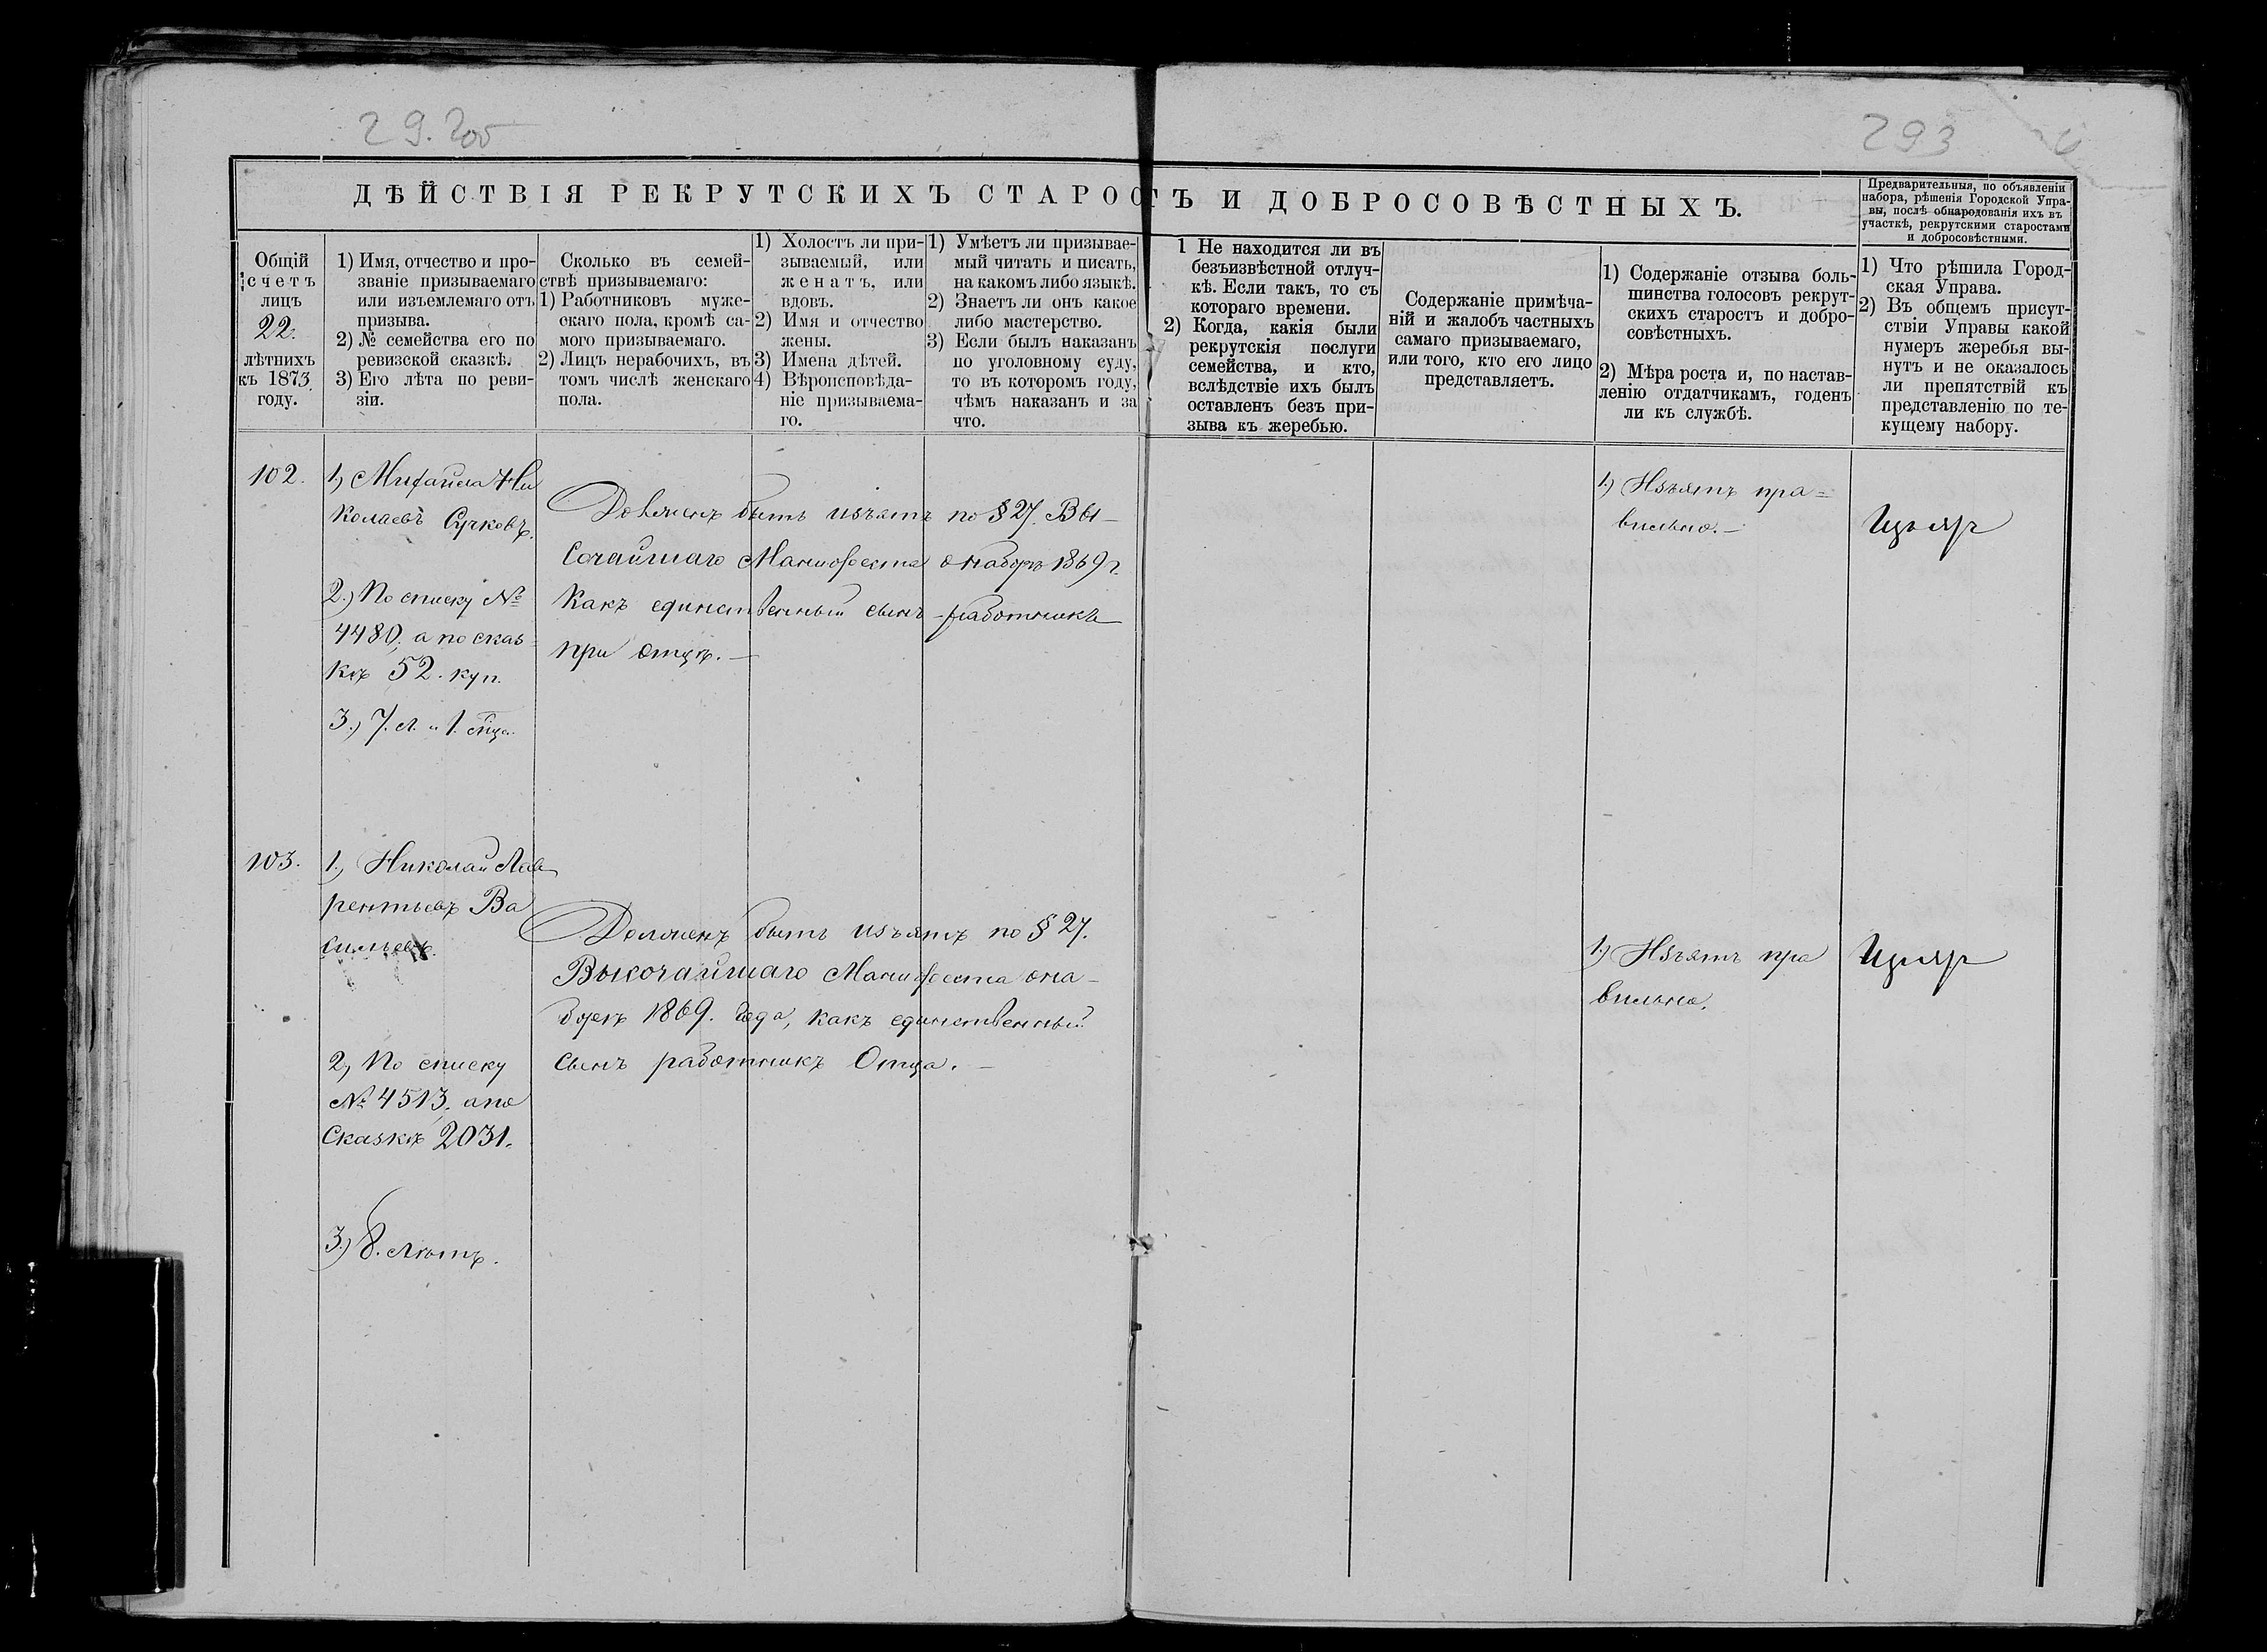 293
ДѢЙСТВІЯ РЕКРУТСКИХЪ СТАРОСТЪ И ДОБРОСОВѢСТНЫХЪ.
Предварительныя, по объявленіи
набора, рѣшенія Городской Упра-
вы, послѣ обнародованія ихъ въ
участкѣ, рекрутскими старостами
и добросовѣстными.
Общій
счетъ
лицъ
22.
лѣтнихъ
къ 1873
году.
1) Имя, отчество и про-
званіе призываемаго
или изъемлемаго отъ
призыва.
2) № семейства его по
ревизской сказкѣ.
3) Его лѣта по реви-
зіи.
Сколько въ семей-
ствѣ призываемаго:
1) Работниковъ муже-
скаго пола, кромѣ са-
мого призываемаго.
2) Лицъ нерабочихъ, въ
томъ числѣ женскаго
пола.
1) Холостъ ли при-
зываемый, или
женатъ, или
вдовъ.
2) Имя и отчество
жены.
3) Имена дѣтей.
4) Вѣроисповѣда-
ніе призываема-
го.
1) Умѣетъ ли призывае-
мый читать и писать,
на какомъ либо языкѣ.
2) Знаетъ ли онъ какое
либо мастерство.
3) Если былъ наказанъ
по уголовному суду,
то въ которомъ году,
чѣмъ наказанъ и за
что.
1 Не находится ли въ
безъизвѣстной отлуч-
кѣ. Если такъ, то съ
котораго времени.
2) Когда, какія были
рекрутскія послуги
семейства, и кто,
вслѣдствіе ихъ былъ
оставленъ безъ при-
зыва къ жеребью.
Содержаніе примѣча-
ній и жалобъ частныхъ
самаго призываемаго,
или того, кто его лицо
представляетъ.
1) Содержаніе отзыва боль-
шинства голосовъ рекрут-
скихъ старостъ и добро-
совѣстныхъ.
2) Мѣра роста и, по настав-
ленію отдатчикамъ, годенъ
ли къ службѣ.
1) Что рѣшила Город-
ская Управа.
2) Въ общемъ присут-
ствіи Управы какой
нумеръ жеребья вы-
нутъ и не оказалось
ли препятствій къ
представленію по те-
кущему набору.
102.
1) Михаила Ни
колаевъ Сучковъ.
2.) По списку №
4480, а по сказ-
кѣ 52. куп.
3.) 7. л. и 1. мца.
Долженъ быть изъятъ по § 27. Вы-
сочайшаго Манифеста о наборѣ 1869 г.
какъ единственный сынъ-работникъ
при отцѣ. —
1) Изъятъ пра=
вильно. —
Изъят
103.
1.) Николай Лав
рентьевъ Ва
сильевъ.
2) По списку
№ 4513, а по
сказкѣ 2031.
3.) 8. лѣтъ.
Долженъ быть изъятъ по § 27.
Высочайшаго Манифеста о на-
борѣ 1869. года, какъ единственный
сынъ работникъ Отца. —
1) Изъятъ пра
вильно.
Изъят